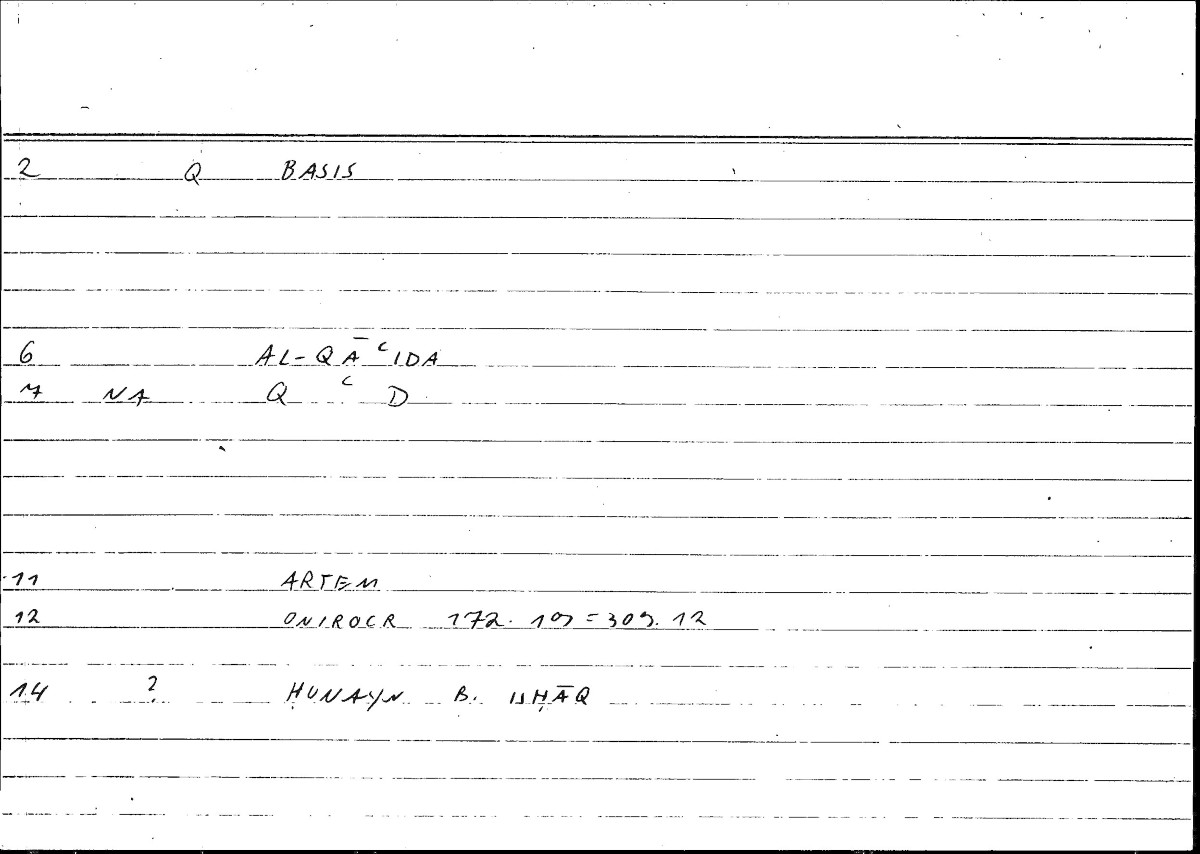 2 Q BASIS
6 AL-QĀʿIDA
7 NA Q ʿ D
11 ARTEM
12 ONIROCR 172. 19 = 309. 12
14 ? ḤUNAYN B. ISḤĀQ